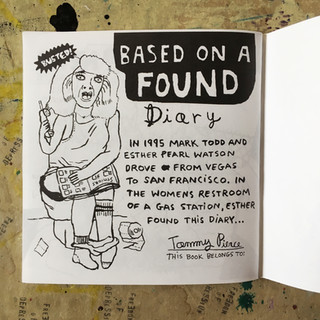 BUSTED!
BASED ON A
FOUND
Diary
IN 1995 MARK TODD AND
ESTHER PEARL WATSON
DROVE FROM VEGAS
TO SAN FRANCISCO. IN
THE WOMENS RESTROOM
OF A GAS STATION, ESTHER
FOUND THIS DIARY...
Tammy Pierce
THIS BOOK BELONGS TO: